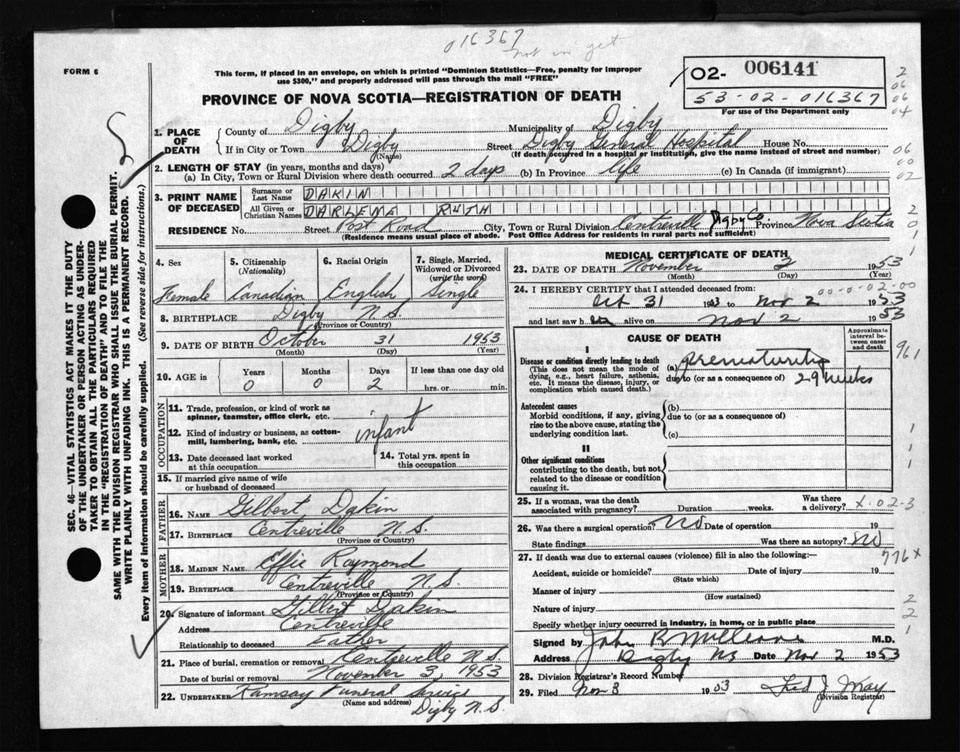 016367
not in yet
FORM 6
This form, if placed in an envelope, on which is printed "Dominion Statistics—Free, penalty for improper
use $300," and properly addressed will pass through the mail "FREE"
02- 006141
53-02-016367
For use of the Department only
PROVINCE OF NOVA SCOTIA—REGISTRATION OF DEATH
1. PLACE OF DEATH
County of Digby Municipality of Digby
If in City or Town Digby (Name) Street Digby General Hospital House No.
(If death occurred in a hospital or institution, give the name instead of street and number)
2. LENGTH OF STAY (in years, months and days)
(a) In City, Town or Rural Division where death occurred 2 days (b) In Province life (c) In Canada (if immigrant)
3. PRINT NAME OF DECEASED
Surname or Last Name DAKIN
All Given or Christian Names DARLENE RUTH
RESIDENCE No. Street Post Road City, Town or Rural Division Centreville Digby Co. Province Nova Scotia
(Residence means usual place of abode. Post Office Address for residents in rural parts not sufficient)
4. Sex Female
5. Citizenship (Nationality) Canadian
6. Racial Origin English
7. Single, Married, Widowed or Divorced (write the word) Single
8. BIRTHPLACE Digby N.S.
(Province or Country)
9. DATE OF BIRTH October 31 1953
(Month) (Day) (Year)
10. AGE in Years 0 Months 0 Days 2 If less than one day old
hrs. or min.
OCCUPATION
11. Trade, profession, or kind of work as spinner, teamster, office clerk, etc.
12. Kind of industry or business, as cotton-mill, lumbering, bank, etc.
infant
13. Date deceased last worked at this occupation
14. Total yrs. spent in this occupation
15. If married give name of wife or husband of deceased
FATHER
16. NAME Gilbert Dakin
17. BIRTHPLACE Centreville N.S.
(Province or Country)
MOTHER
18. MAIDEN NAME Effie Raymond
19. BIRTHPLACE Centreville N.S.
(Province or Country)
20. Signature of informant Gilbert Dakin
Address Centreville
Relationship to deceased Father
21. Place of burial, cremation or removal Centreville N.S.
Date of burial or removal November 3, 1953
22. UNDERTAKER Ramsay Funeral Service
(Name and address) Digby N.S.
MEDICAL CERTIFICATE OF DEATH
23. DATE OF DEATH November 2 1953
(Month) (Day)
24. I HEREBY CERTIFY that I attended deceased from:
Oct 31 1953 to Nov 2 1953
and last saw h er alive on Nov 2 1953
CAUSE OF DEATH
Approximate interval between onset and death
I
Disease or condition directly leading to death
(This does not mean the mode of dying, e.g., heart failure, asthenia, etc. It means the disease, injury, or complication which caused death.)
(a) Prematurity
due to (or as a consequence of) 29 weeks
Antecedent causes
Morbid conditions, if any, giving rise to the above cause, stating the underlying condition last.
(b)
due to (or as a consequence of)
(c)
II
Other significant conditions
contributing to the death, but not related to the disease or condition causing it.
25. If a woman, was the death associated with pregnancy? Duration weeks. Was there a delivery?
26. Was there a surgical operation? No Date of operation 19
State findings Was there an autopsy? No
27. If death was due to external causes (violence) fill in also the following:—
Accident, suicide or homicide? Date of injury 19
(State which)
Manner of injury
(How sustained)
Nature of injury
Specify whether injury occurred in industry, in home, or in public place
Signed by M.D.
Address Digby NS Date Nov 2 1953
28. Division Registrar's Record Number
29. Filed Nov 3 1953 Fred J. May
(Division Registrar)
961
776x
SEC. 46—VITAL STATISTICS ACT MAKES IT THE DUTY
OF THE UNDERTAKER OR PERSON ACTING AS UNDER-
TAKER TO OBTAIN ALL THE PARTICULARS REQUIRED
IN THE "REGISTRATION OF DEATH" AND TO FILE THE
SAME WITH THE DIVISION REGISTRAR WHO SHALL ISSUE THE BURIAL PERMIT.
WRITE PLAINLY WITH UNFADING INK. THIS IS A PERMANENT RECORD.
Every item of information should be carefully supplied. (See reverse side for instructions.)